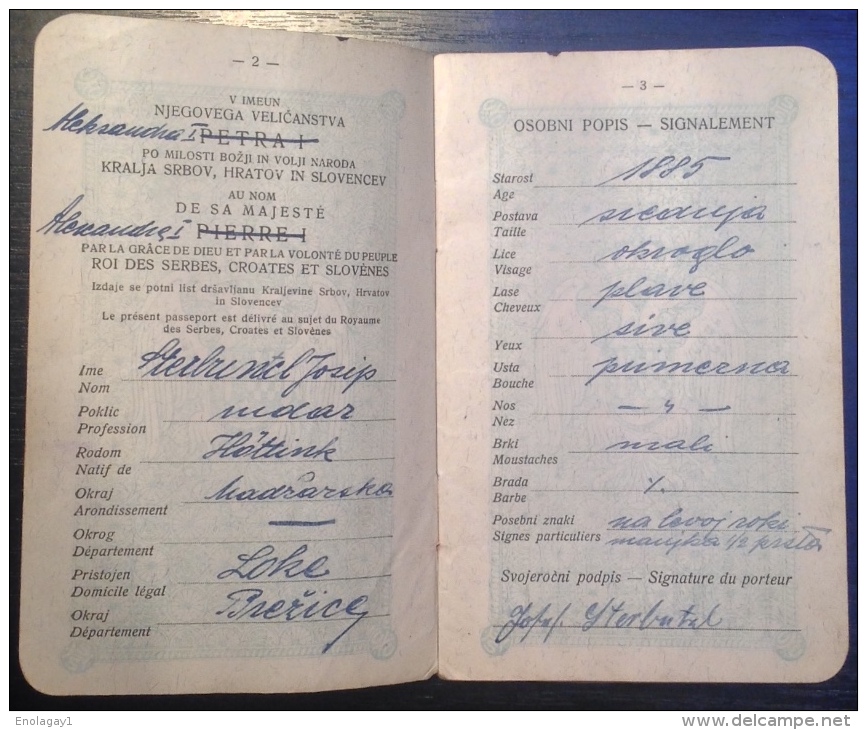 — 2 —
V IMEUN
NJEGOVEGA VELIČANSTVA
Aleksandra I PETRA I
PO MILOSTI BOŽJI IN VOLJI NARODA
KRALJA SRBOV, HRATOV IN SLOVENCEV
AU NOM
DE SA MAJESTÉ
Alexandre I PIERRE I
PAR LA GRÂCE DE DIEU ET PAR LA VOLONTÉ DU PEUPLE
ROI DES SERBES, CROATES ET SLOVÈNES
Izdaje se potni list dršavljanu Kraljevine Srbov, Hrvatov
in Slovencev
Le présent passeport est délivré au sujet du Royaume
des Serbes, Croates et Slovènes
Ime Josip
Nom
Poklic rudar
Profession
Rodom Höttink
Natif de
Okraj Madžarska
Arondissement
Okrog —
Département
Pristojen Loke
Domicile légal
Okraj Brežice
Département
— 3 —
OSOBNI POPIS — SIGNALEMENT
Starost 1885
Age
Postava srednja
Taille
Lice okroglo
Visage
Lase plave
Cheveux
sive
Yeux
Usta primerna
Bouche
Nos — " —
Nez
Brki mali
Moustaches
Brada
Barbe
Posebni znaki na levoj roki
Signes particuliers manjka 1/2 prsta
Svojeročni podpis — Signature du porteur
Enolagay1
www.delcampe.net